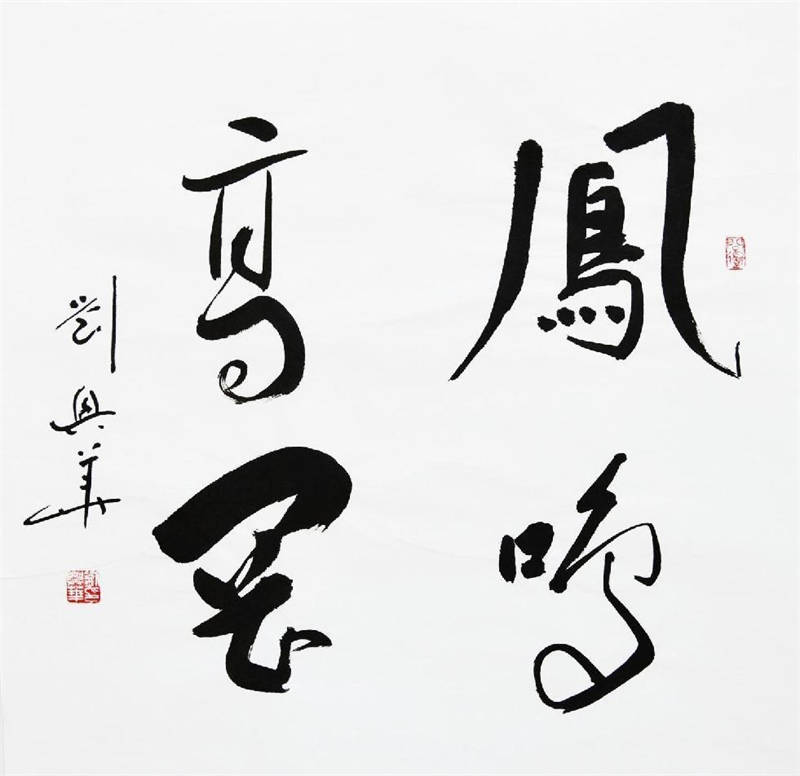 鳳鳴
高岡
劉興華